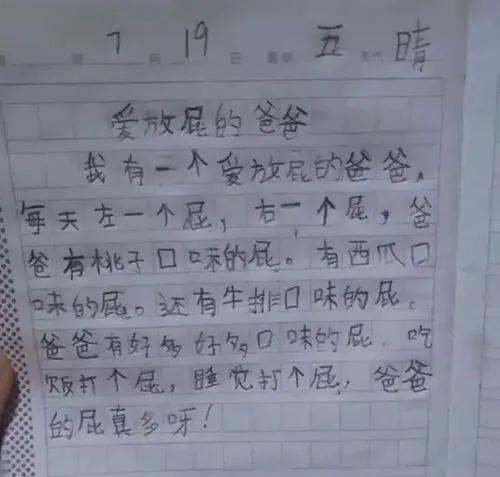 7月19日 星期五 天气晴
爱放屁的爸爸
我有一个爱放屁的爸爸,
每天左一个屁,右一个屁,爸
爸有桃子口味的屁。有西瓜口
味的屁。还有牛排口味的屁。
爸爸有好多好多口味的屁.吃
饭打个屁,睡觉打个屁,爸爸
的屁真多呀!